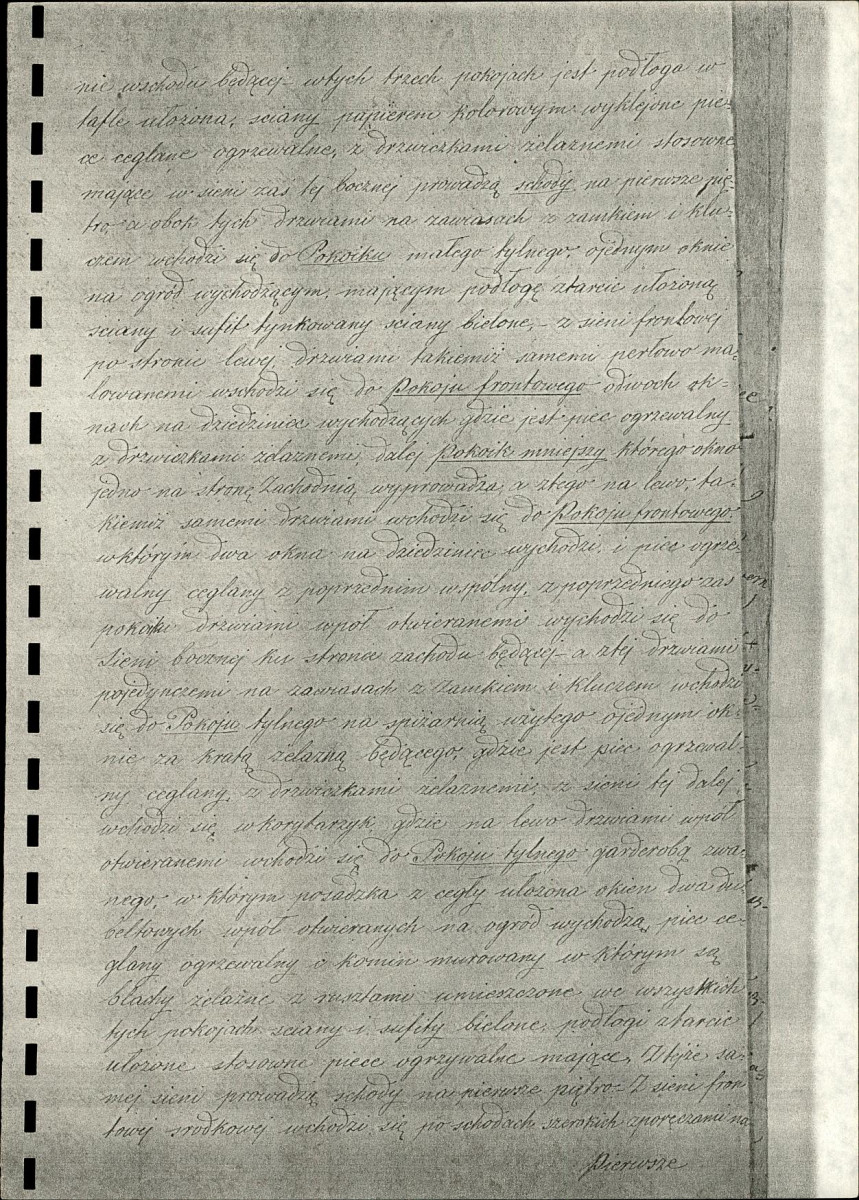 nie wschodu będącej – wtych trzech pokojach jest podłoga w
tafle ułożona, sciany papierem kolorowym wyklejone pie-
ce ceglane ogrzewalne, z drzwiczkami żelaznemi stosowne
mające w sieni zas tej bocznej prowadzą schody na pierwsze pię-
tro, a obok tych drzwiami na zawiasach z zamkiem i klu-
czem wchodzi się do Pokoiku małego tylnego, ojednym oknie
na ogród wychodzącym, mającym podłogę ztarcic ułożoną
sciany i sufit tynkowany sciany bielone, – z sieni frontowej
po stronie lewej drzwiami takiemiż samemi perłowo ma-
lowanemi wschodzi się do Pokoju frontowego odwoch ok-
nach na dziedziniec wychodzących gdzie jest piec ogrzewalny
z drzwiczkami żelaznemi, dalej Pokoik mniejszy którego okno
jedno na stronę Zachodnią, wyprowadza, a ztego na lewo, ta-
kiemiż samemi drzwiami wchodzi się do Pokoju frontowego,
wktórym dwa okna na dziedziniec wychodzi, i piec ogrze-
walny ceglany z poprzednim wspólny, z poprzedniego zas
pokoiku drzwiami wpół otwieranemi wychodzi się do
Sieni bocznej ku stronie zachodu będącej – a ztej drzwiami
pojedynczemi na zawiasach z Zamkiem i kluczem wchodzi
się do Pokoju tylnego na spiżarnią użytego ojednym ok-
nie za kratą żelazną będącego, gdzie jest piec ogrzewal-
ny ceglany, z drzwiczkami żelaznemi, z sieni tej dalej
wchodzi się wkorytarzyk, gdzie na lewo drzwiami wpół
otwieranemi wchodzi się do Pokoju tylnego garderobą zwa-
nego, w którym posadzka z cegły ułożona okien dwa du-
beltowych wpół otwieranych na ogród wychodzą, piec ce-
glany ogrzewalny i komin murowany w którym są
blachy żelazne z rusztami umieszczone we wszystkich
tych pokojach sciany i sufity bielone, podłogi ztarcic
ułożone stosowne piece ogrzywalne mające, Ztejże sa-
mej sieni prowadzą schody na pierwsze piątro – Z sieni fron
towej srodkowej wchodzi się po schodach szerokich zporęczami na
Pierwsze